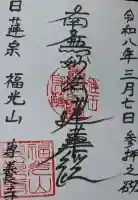 令和八年三月七日参拝之砌
南無妙法蓮華経
日蓮宗 福光山